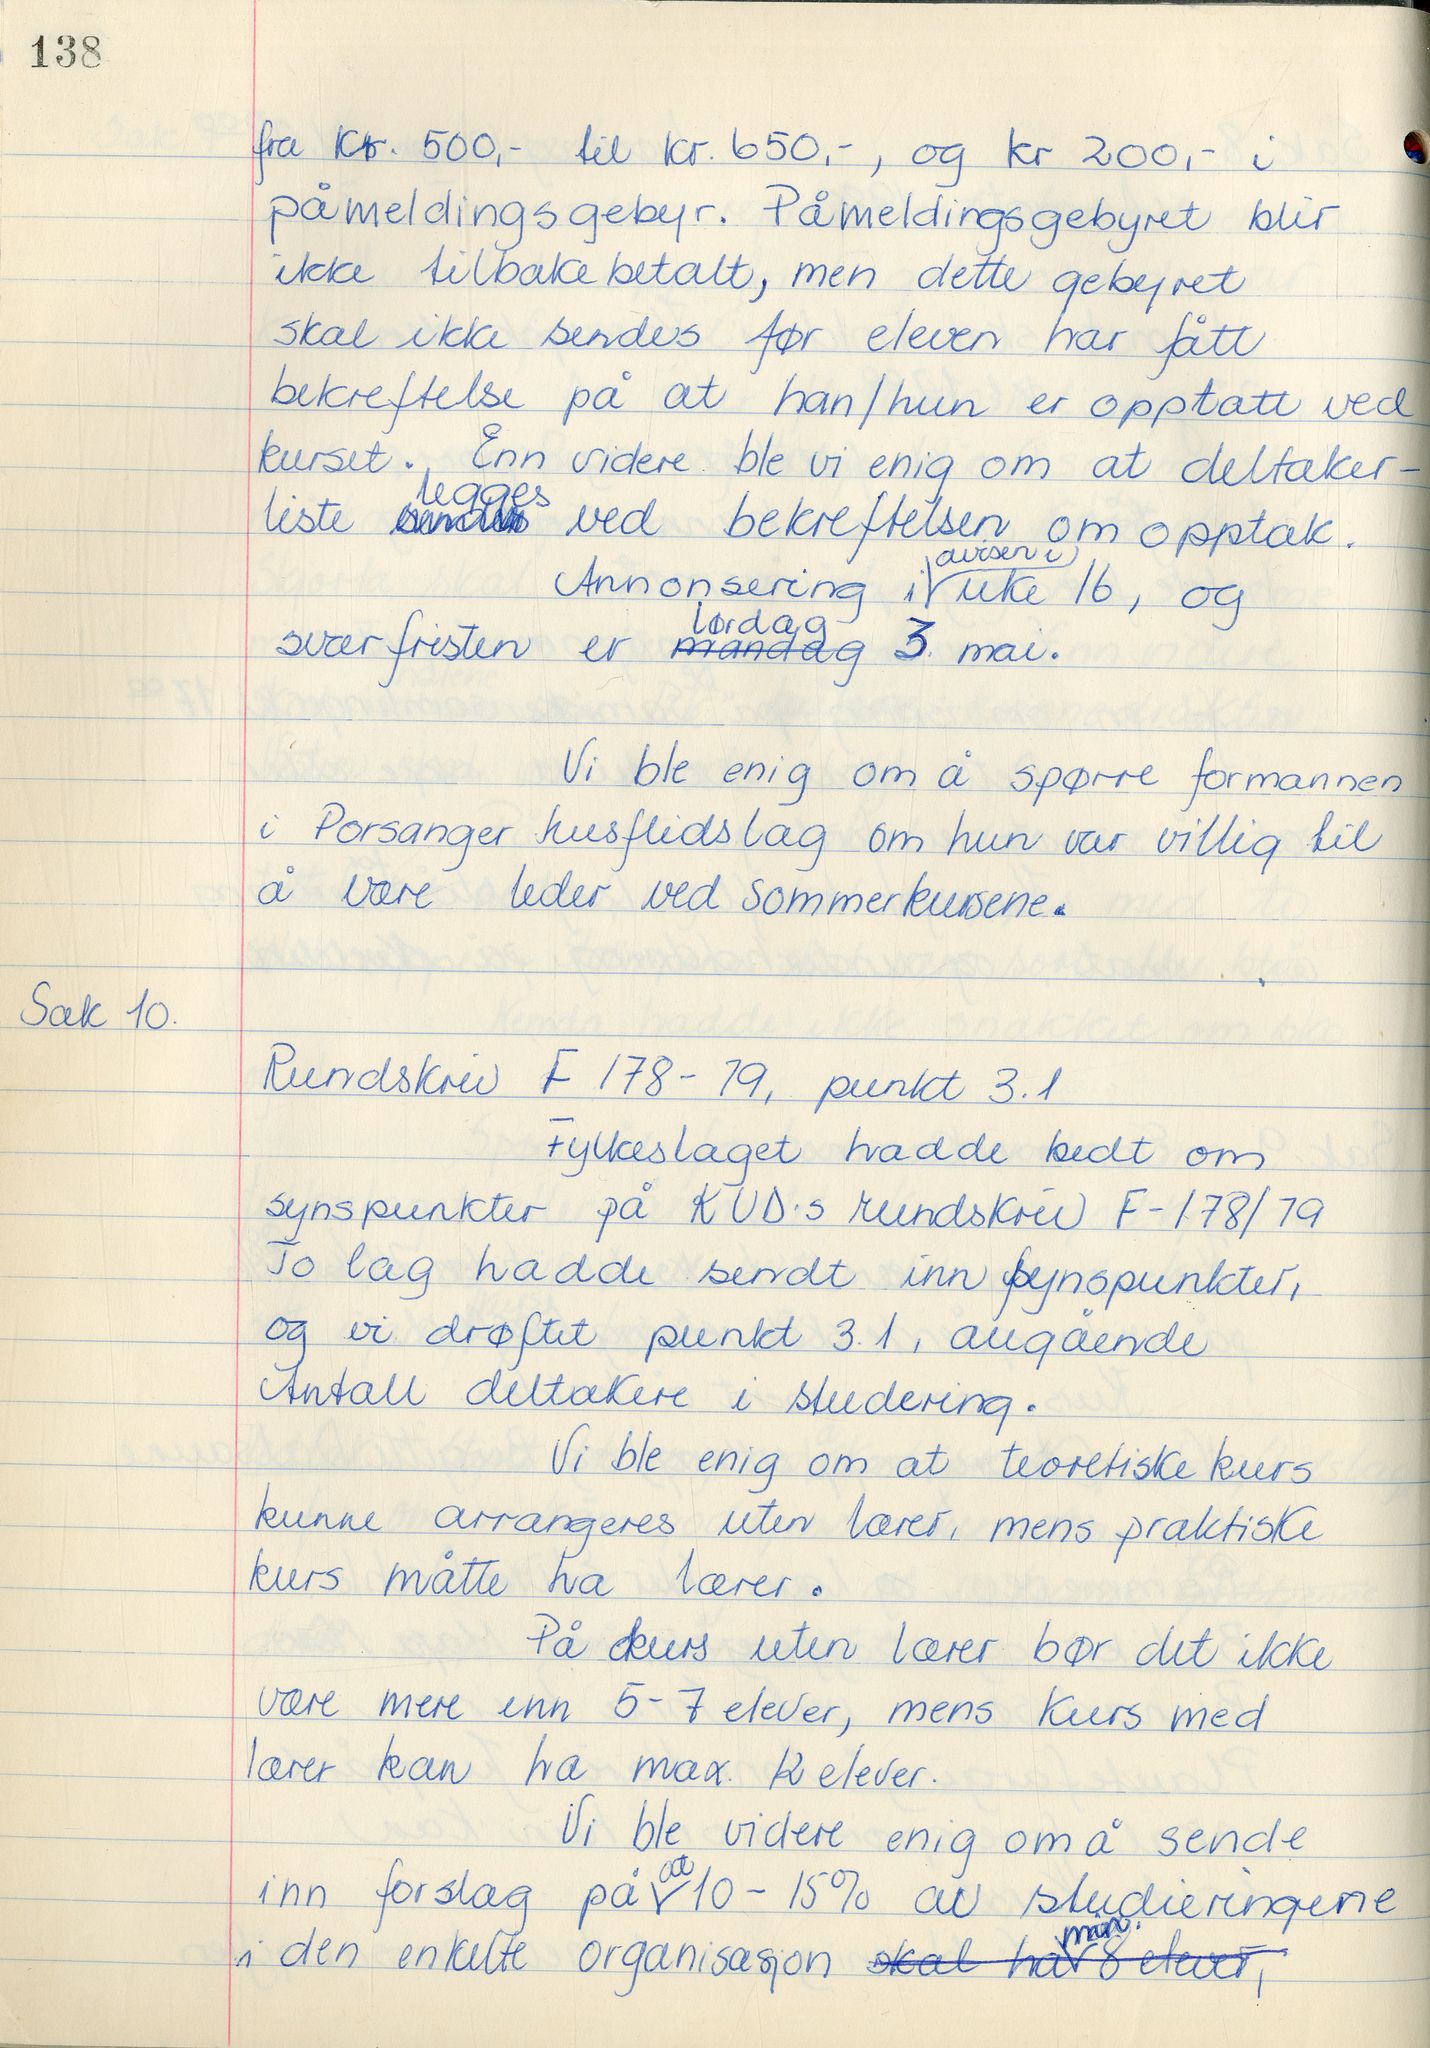 138
fra Kr. 500,- til kr. 650,-, og kr 200,- i
påmeldingsgebyr. Påmeldingsgebyret blir
ikke tilbakebetalt, men dette gebyret
skal ikke sendes før eleven har fått
bekreftelse på at han/hun er opptatt ved
kurset. Enn videre ble vi enig om at deltaker-
legges
liste sendes ved bekreftelsen om opptak.
avisen i
Annonsering i uke 16, og
lørdag
svarfristen er mandag 3. mai.
Vi ble enig om å spørre formannen
i Porsanger husflidslag om hun var villig til
å være leder ved sommerkursene.
Sak 10.
Rundskriv F 178-79, punkt 3.1
Fylkeslaget hadde bedt om
synspunkter på KUD's rundskriv F-178/79
To lag hadde sendt inn synspunkter,
og vi drøftet punkt 3.1, angående
Antall deltakere i studiering.
Vi ble enig om at teoretiske kurs
kunne arrangeres uten lærer, mens praktiske
kurs måtte ha lærer.
På kurs uten lærer bør det ikke
være mere enn 5-7 elever, mens kurs med
lærer kan ha max. 12 elever.
Vi ble videre enig om å sende
at
inn forslag på 10-15% av studieringene
min.
i den enkelte organisasjon skal ha 8 elever,